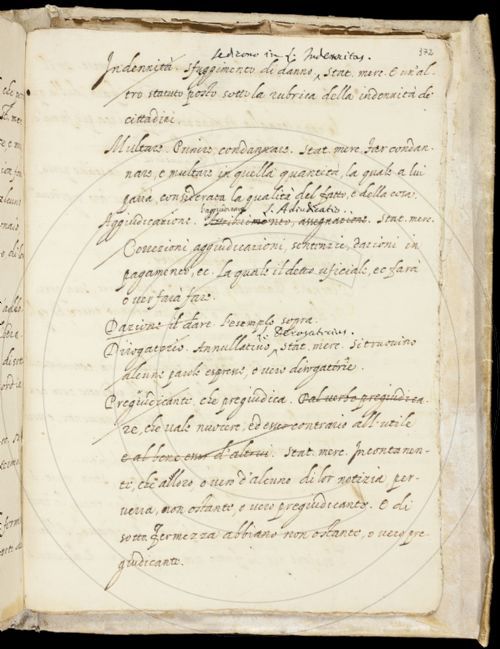 372
Indennità. Sfuggimento di danno, Stat. merc. E un'al-
tro statuto posto sotto la rubrica della indennità de'
cittadini.
Multare. Punire condannare. Stat. merc. Far condan-
nare, e multare in quella quantità, la quale a lui
parrà, considerata la qualità del fatto, e della cosa.
l. Adiudicatio.
Aggiudicazione. assegnazione. Stat. merc.
Correzioni, aggiudicazioni, sentenzie, dazioni in
pagamento, ec. La quale il detto uficiale, ec farà
o ver farà fare.
Dazione il dare. L'esemplo sopra.
l. Derogatorius.
Dirogatorio. Annullativo, Stat. merc. Si truovino
alcune parole espresse, o vero dirogatorie.
Pregiudicante, che pregiudica. Dal verbo pregiudica-
re, che vale nuocere, ed esser contrario all'utile
e al bene d'altrui. Stat. merc. Incontanen-
te, che alloro, o vero d'alcuno di lor notizia per-
verrà, non ostante, o vero pregiudicante. E di
sotto Fermezza abbiano non ostante, o vero pre-
giudicante.